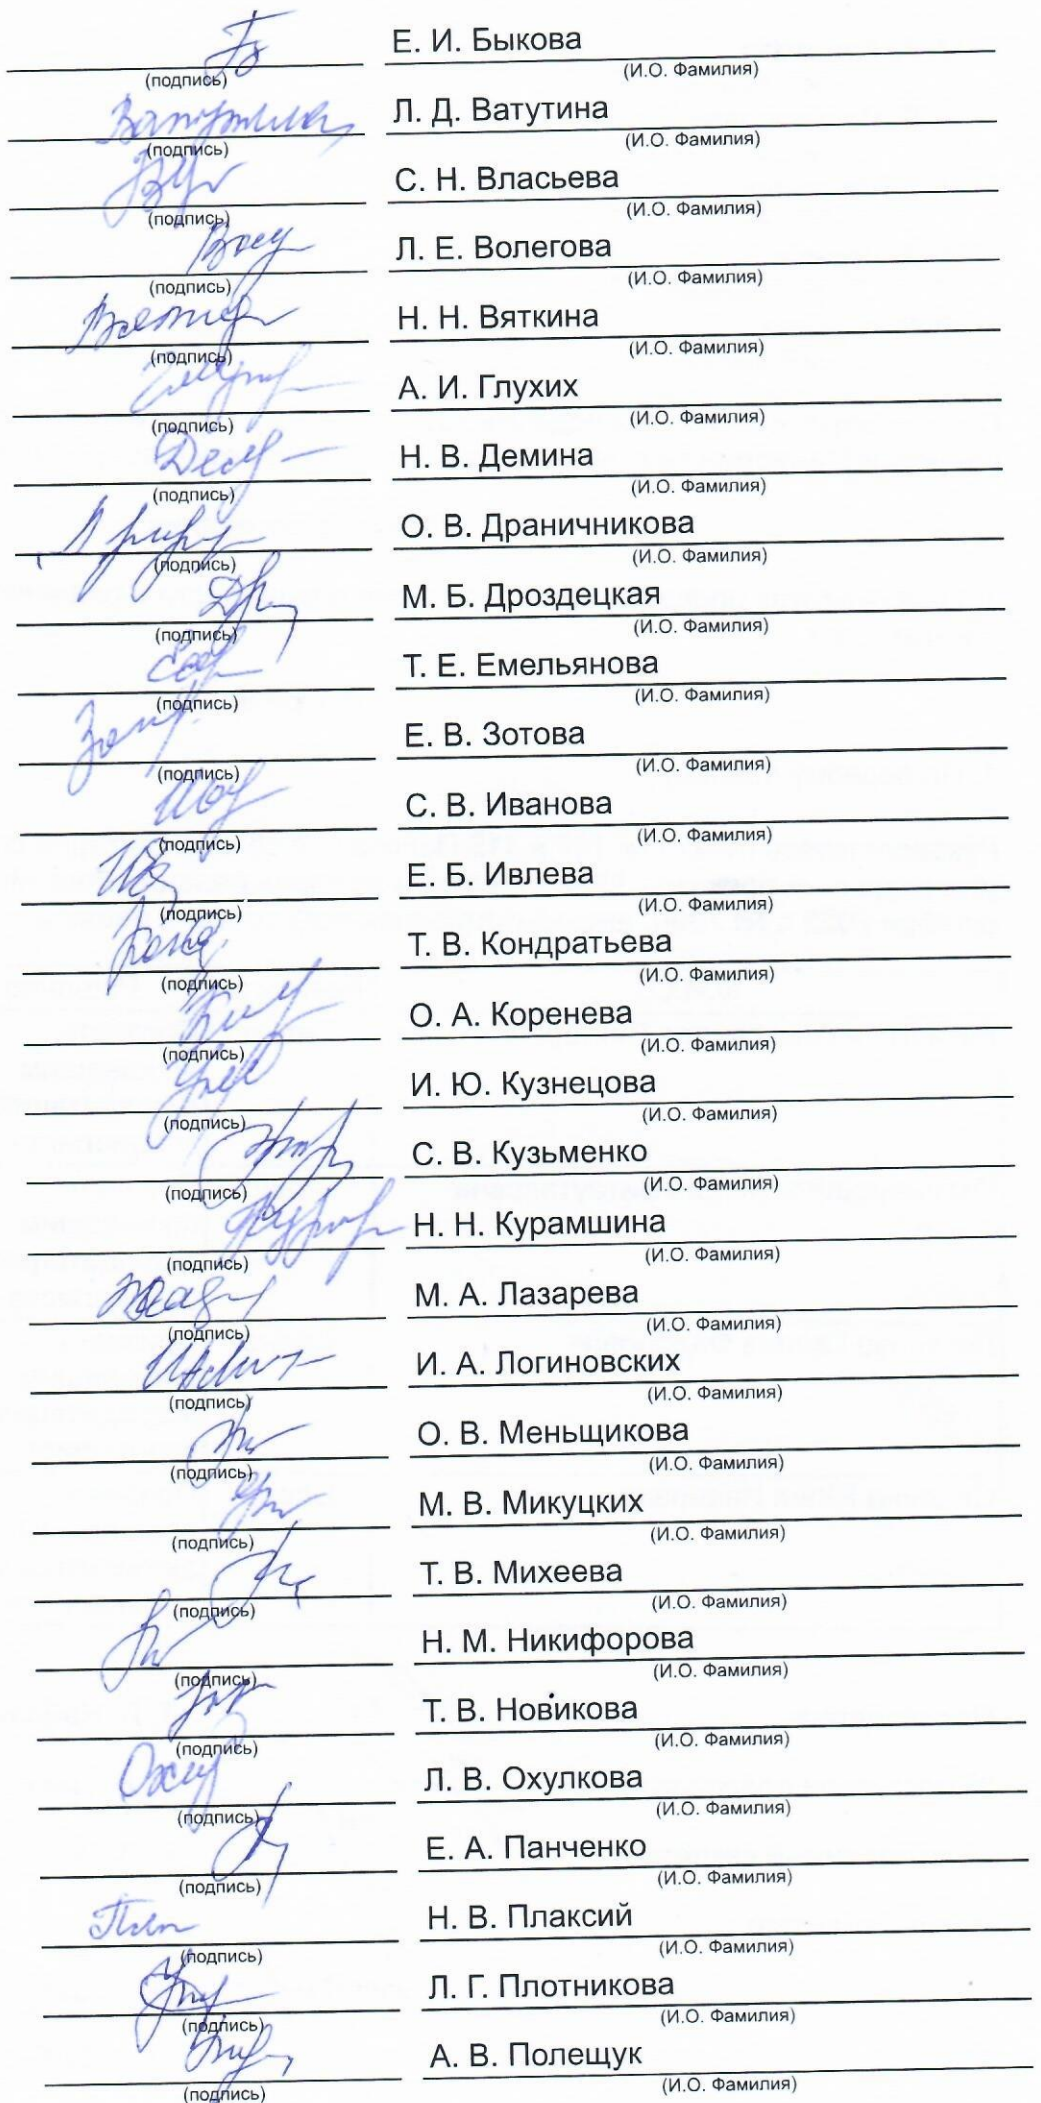 Е. И. Быкова
(подпись) (И.О. Фамилия)
Ватутина Л. Д. Ватутина
(подпись) (И.О. Фамилия)
С. Н. Власьева
(подпись) (И.О. Фамилия)
Л. Е. Волегова
(подпись) (И.О. Фамилия)
Н. Н. Вяткина
(подпись) (И.О. Фамилия)
А. И. Глухих
(подпись) (И.О. Фамилия)
Н. В. Демина
(подпись) (И.О. Фамилия)
О. В. Драничникова
(подпись) (И.О. Фамилия)
М. Б. Дроздецкая
(подпись) (И.О. Фамилия)
Т. Е. Емельянова
(подпись) (И.О. Фамилия)
Е. В. Зотова
(подпись) (И.О. Фамилия)
С. В. Иванова
(подпись) (И.О. Фамилия)
Е. Б. Ивлева
(подпись) (И.О. Фамилия)
Т. В. Кондратьева
(подпись) (И.О. Фамилия)
О. А. Коренева
(подпись) (И.О. Фамилия)
И. Ю. Кузнецова
(подпись) (И.О. Фамилия)
С. В. Кузьменко
(подпись) (И.О. Фамилия)
Н. Н. Курамшина
(подпись) (И.О. Фамилия)
М. А. Лазарева
(подпись) (И.О. Фамилия)
И. А. Логиновских
(подпись) (И.О. Фамилия)
О. В. Меньщикова
(подпись) (И.О. Фамилия)
М. В. Микуцких
(подпись) (И.О. Фамилия)
Т. В. Михеева
(подпись) (И.О. Фамилия)
Н. М. Никифорова
(подпись) (И.О. Фамилия)
Т. В. Новикова
(подпись) (И.О. Фамилия)
Л. В. Охулкова
(подпись) (И.О. Фамилия)
Е. А. Панченко
(подпись) (И.О. Фамилия)
Н. В. Плаксий
(подпись) (И.О. Фамилия)
Л. Г. Плотникова
(подпись) (И.О. Фамилия)
А. В. Полещук
(подпись) (И.О. Фамилия)